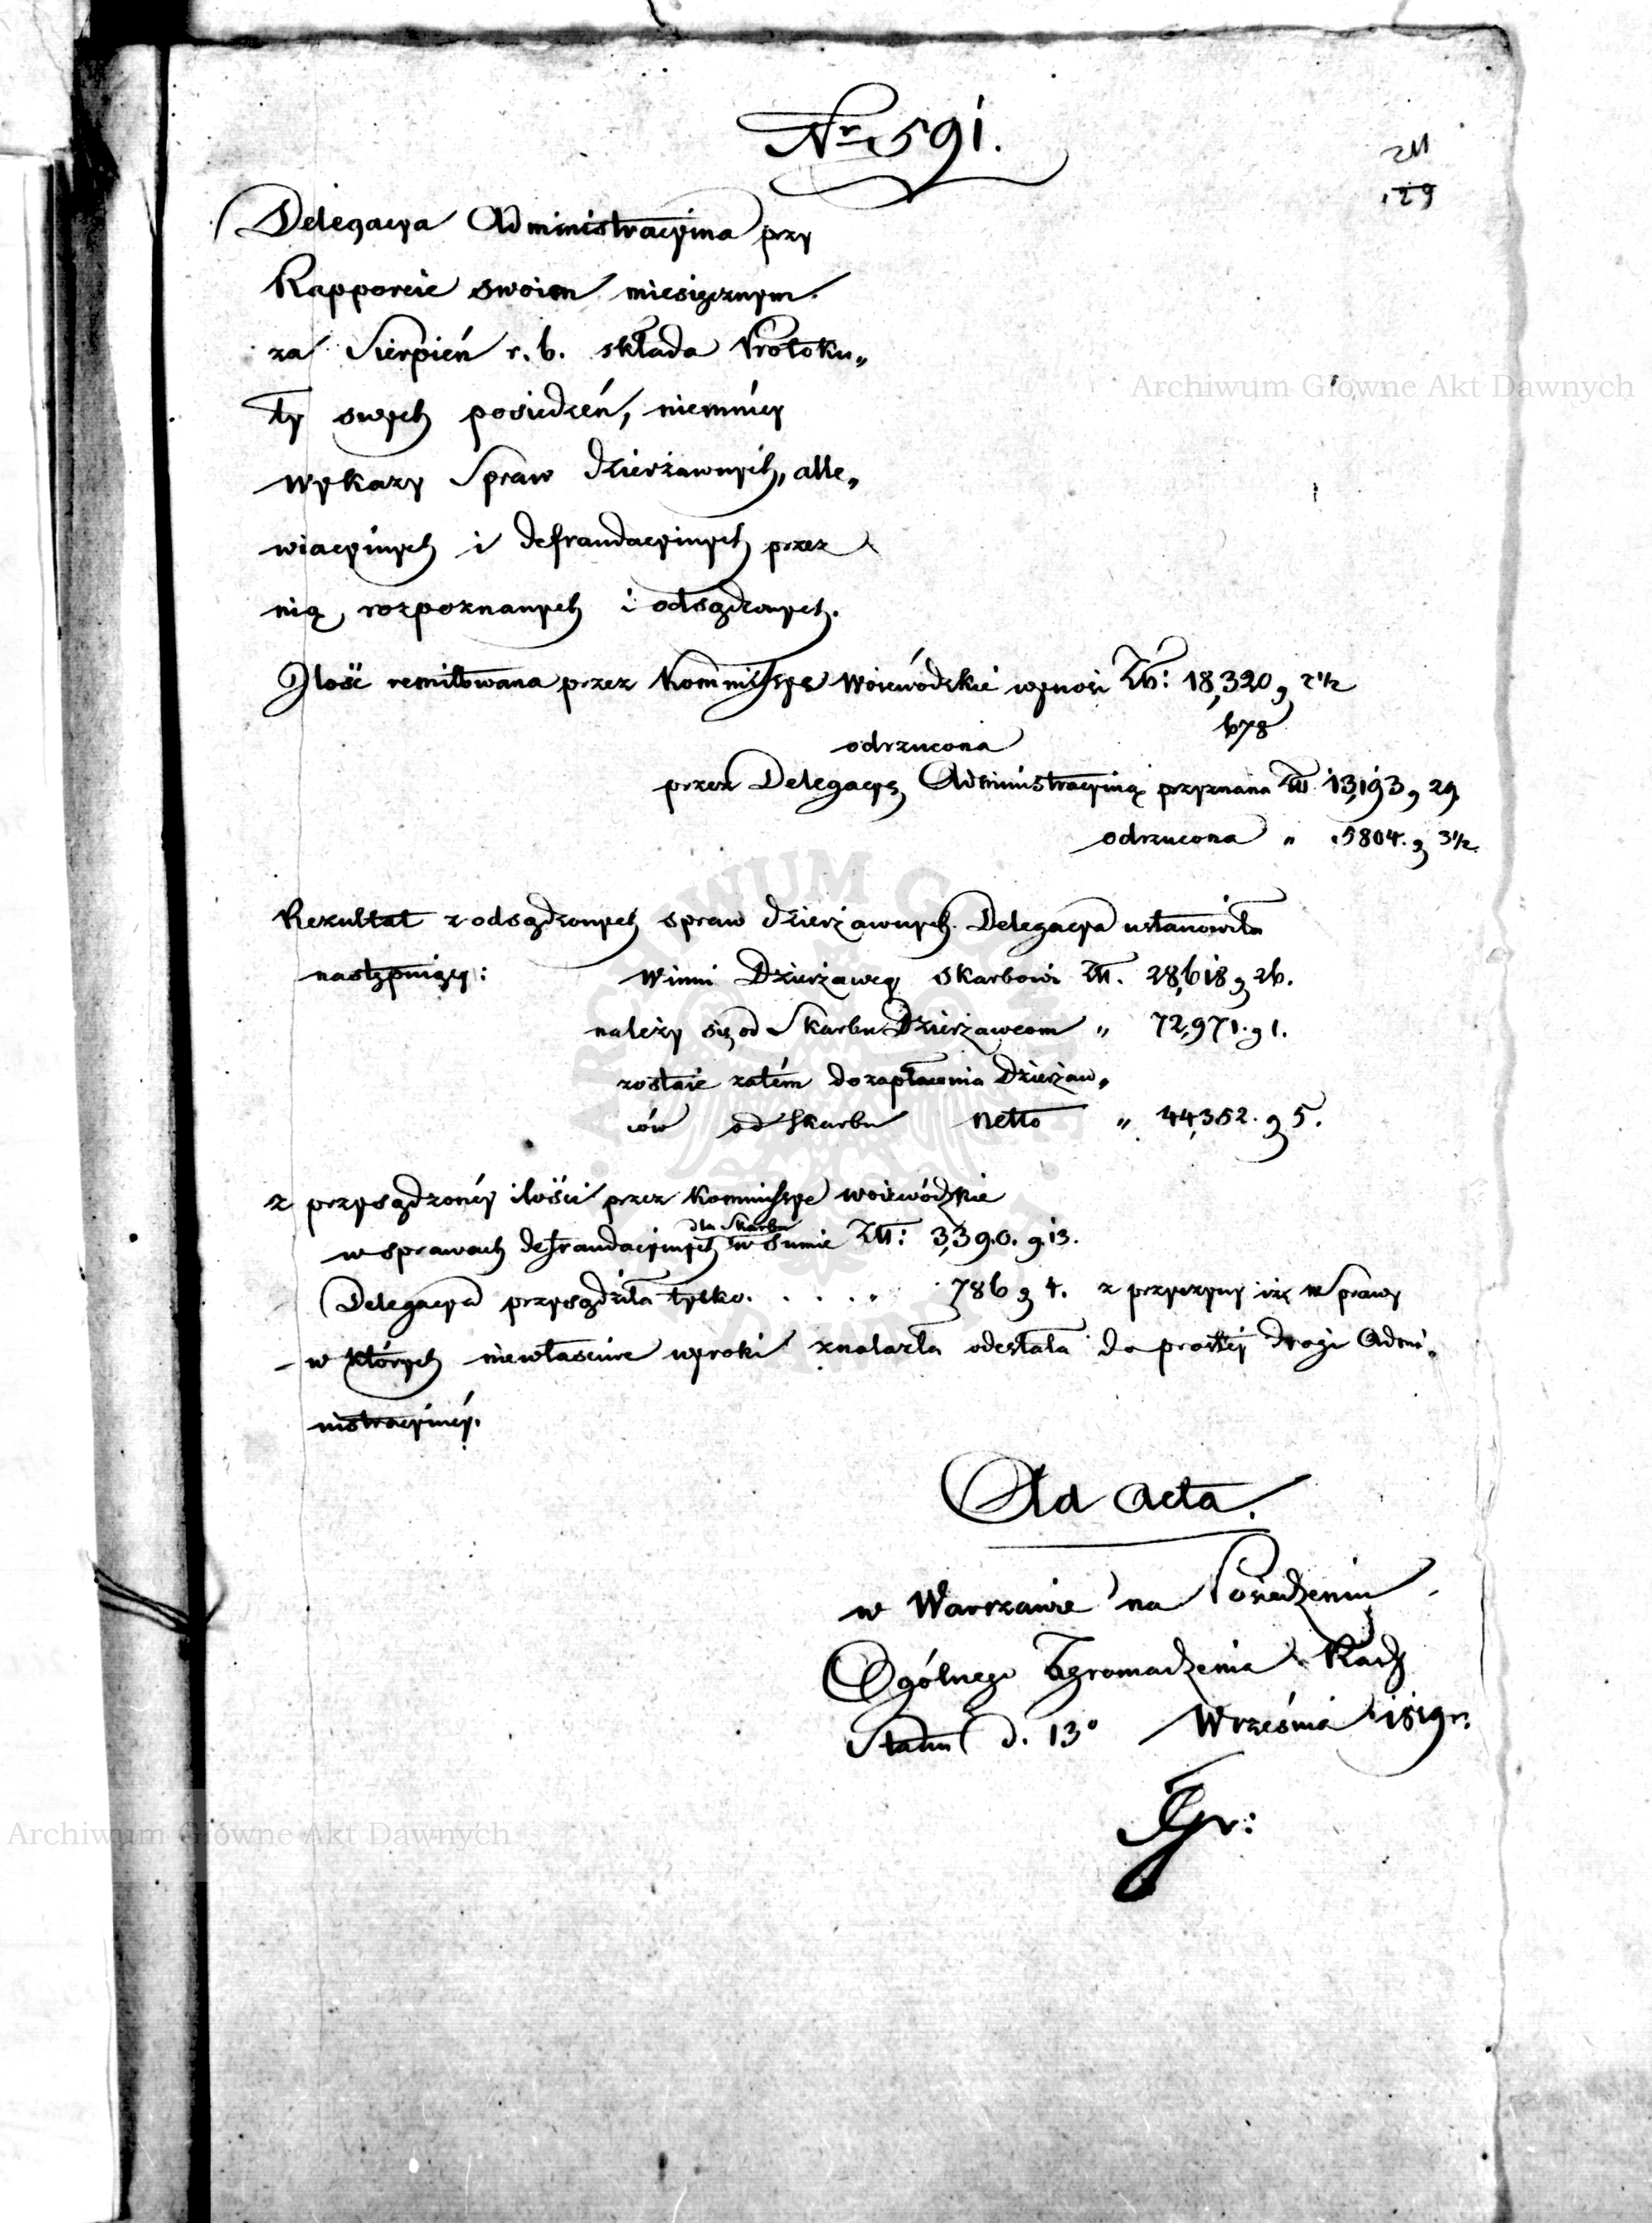 Nr 591.
211
129
Delegacya Administracyina przy
Rapporcie swoim miesięcznym
za Sierpień r. b. składa Protoku„
ły swych posiedzeń, niemniéy
wykazy Spraw dzierżawnych, alle„
wiacyinych i defraudacyinych przez
nią rozpoznanych i odsądzonych.
Ilość remittowana przez Kommissye Woiewódzkie wynosi Zł: 18,320 g 2 1/2
odrzucona 678
przez Delegacyę Administracyiną przyznana Zł 13,193 g 29
odrzucona „ 5804. g 3 1/2
Rezultat z odsądzonych spraw dzierżawnych Delegacya ustanowiła
następuiący: Winni Dzierżawcy skarbowi Zł. 28,618 g 26.
należy się od Skarbu Dzierżawcom „ 72,971. g 1.
zostaie zatém do zapłacenia Dzierżaw„
ców od Skarbu netto „ 44,352. g 5.
z przysądzonéy ilości przez Kommissye woiewódzkie
w sprawach defraudacyinych dla Skarbu w sumie Zł: 3,390. g. 13.
Delegacya przysądziła tylko . . . . „ 786 g 4. z przyczyny iż Sprawy
w których niewłaściwe wyroki znalazła odesłała do prostéj drogi Admi„
nistracyinéy.
Ad Acta.
w Warszawie na Posiedzeniu
Ogólnego Zgromadzenia Rady
Stanu d. 13° Września 1819 r.
Archiwum Główne Akt Dawnych
Archiwum Główne Akt Dawnych